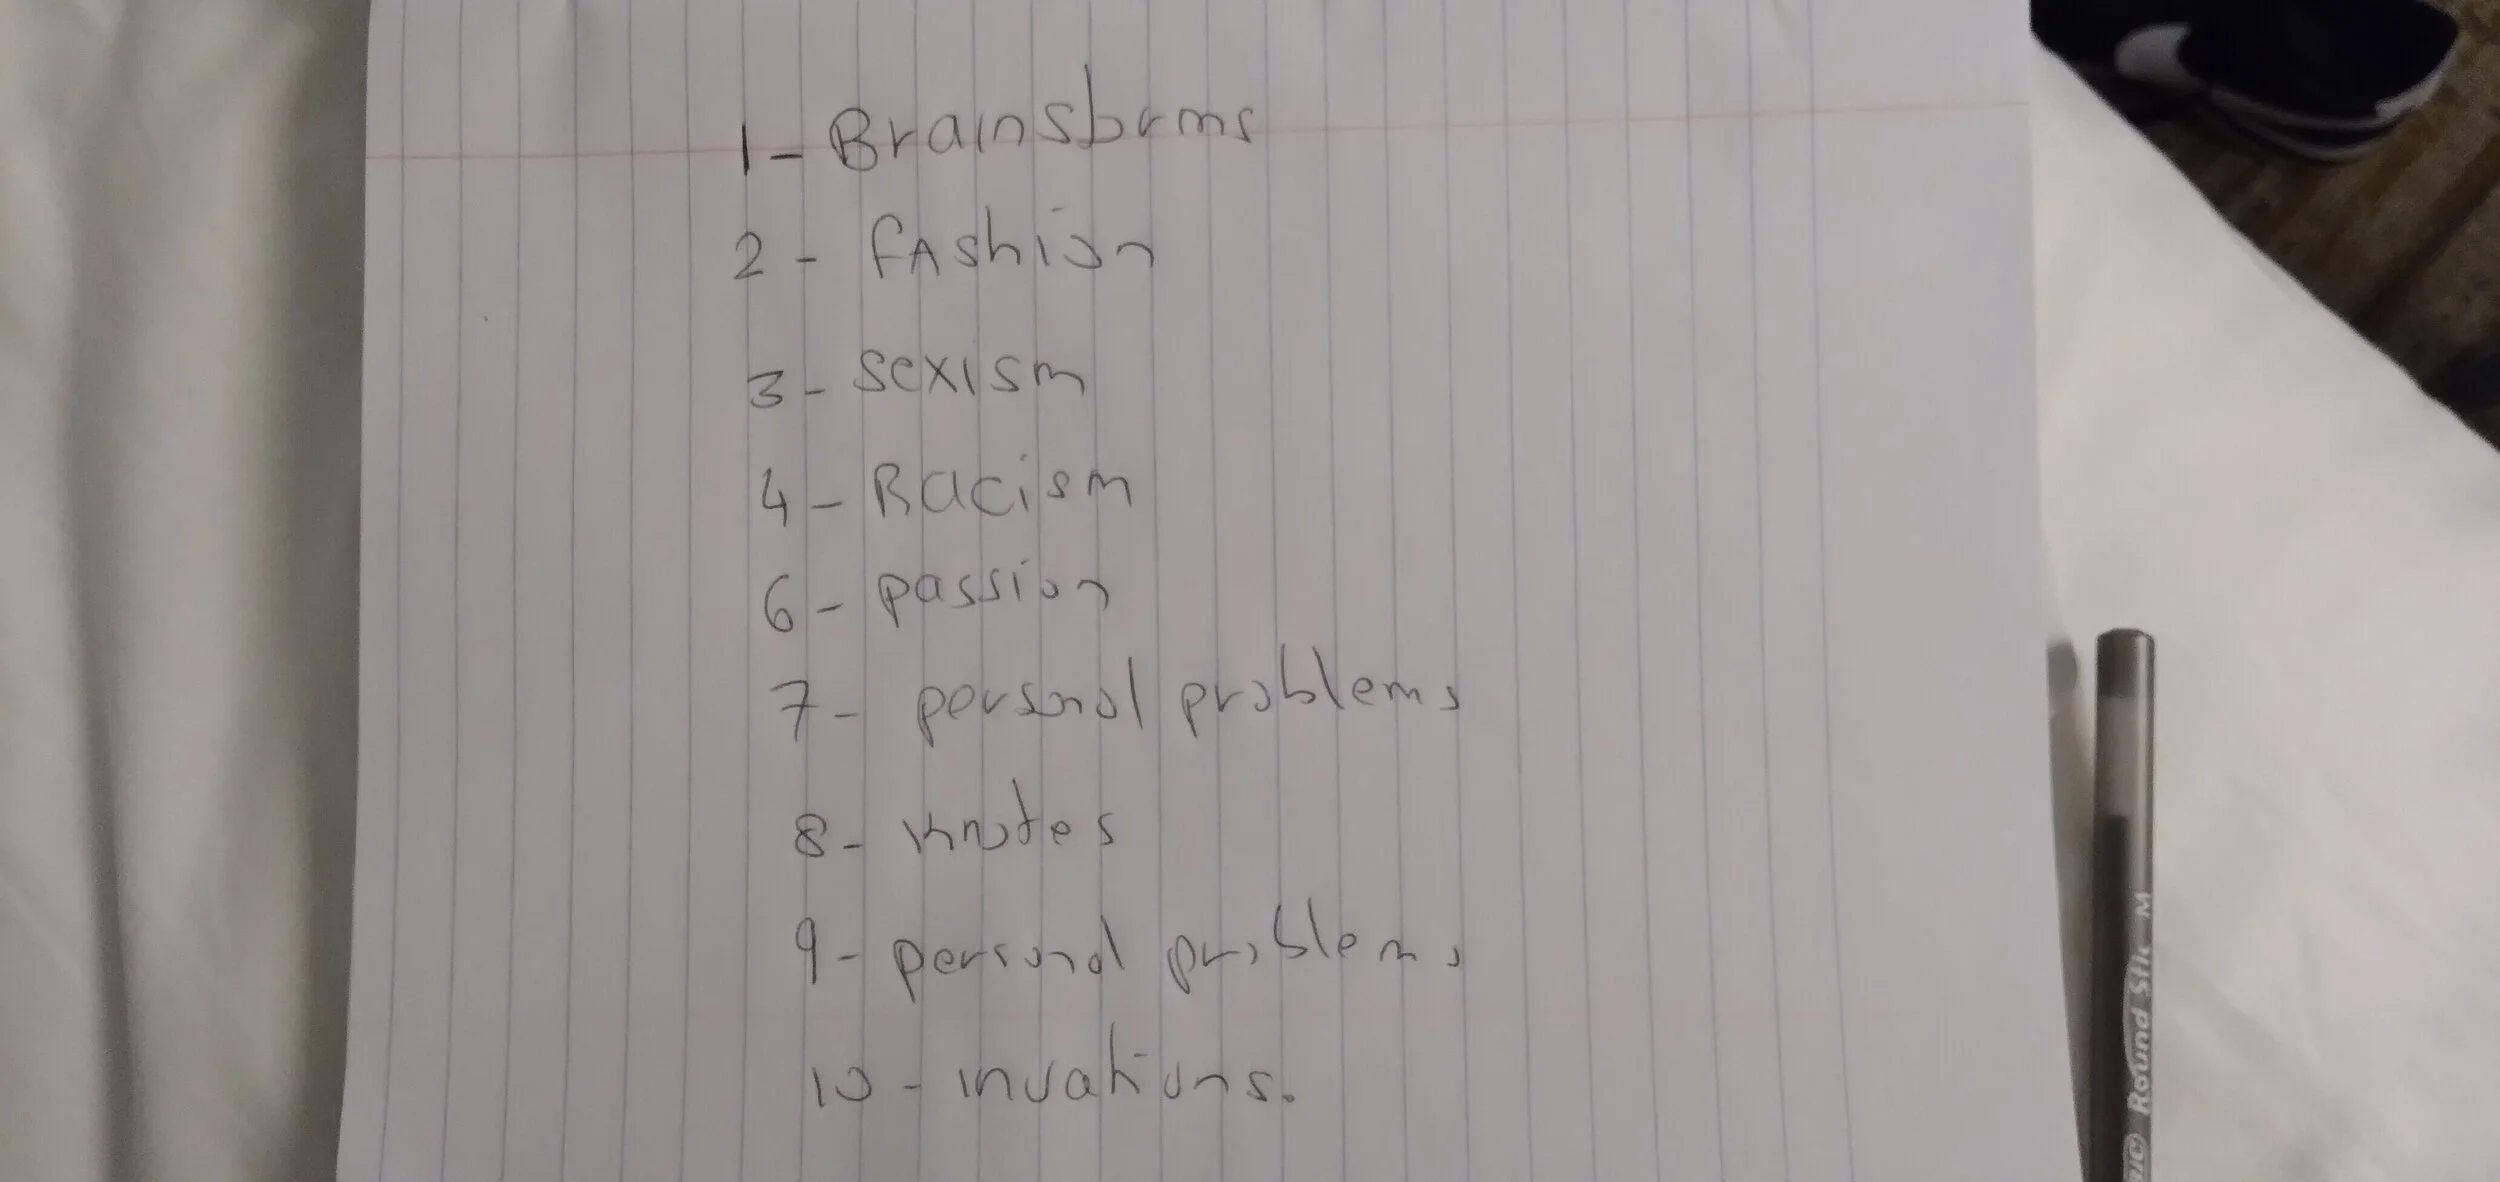 1- Brainstorms
2- fAshion
3- sexism
4- Racism
6- passion
7- personal problems
8- knotes
9- personal problems
10- invations.
BIC® Round Stic M